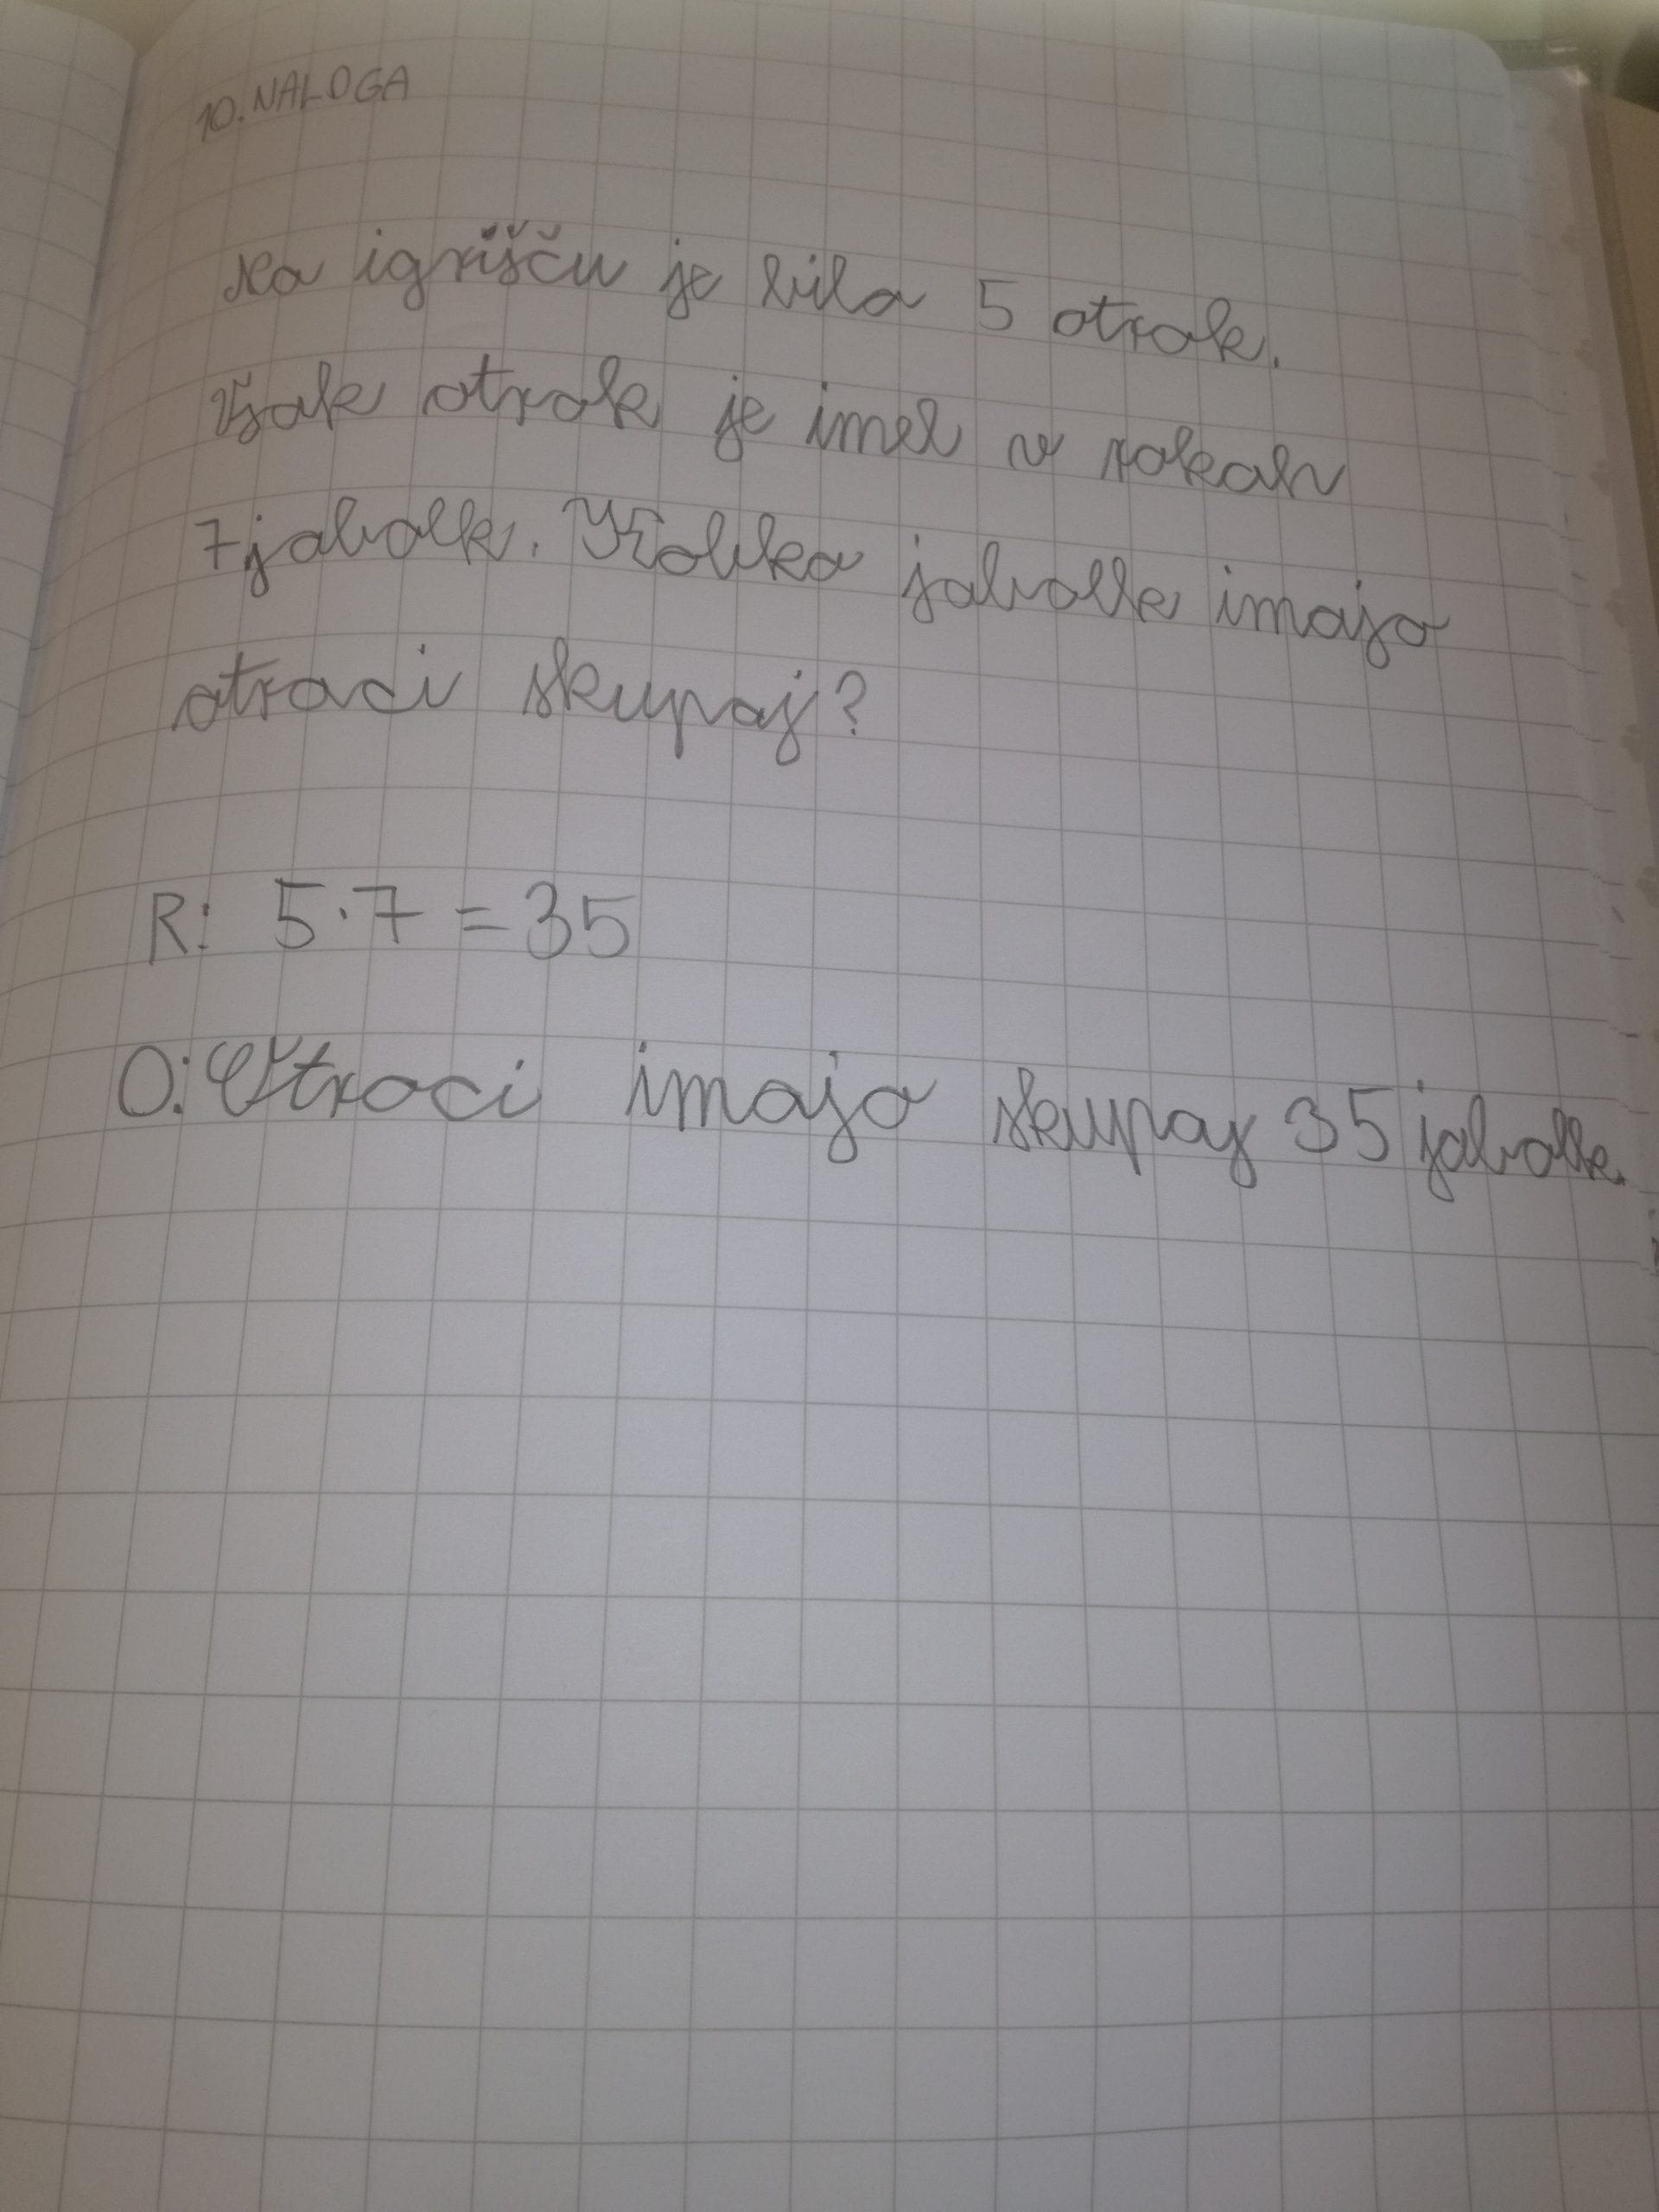 10. NALOGA
Na igrišču je bila 5 otrok.
Vsak otrok je imel v rokah
7 jabolk. Koliko jabolk imajo
otroci skupaj?
R: 5·7 = 35
O: Otroci imajo skupaj 35 jabolk.